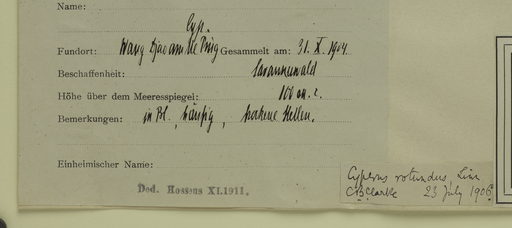 Name:
Cyp.
Fundort: Wang Djao am Me Ping Gesammelt am: 31. X. 1904
Beschaffenheit: Savannenwald
Höhe über dem Meeresspiegel: 100 m.
Bemerkungen: in Bl., häufig, trockene Stellen.
Einheimischer Name:
Ded. Hosseus XI.1911.
Cyperus rotundus, Linn
CBClarke 23 July 1906